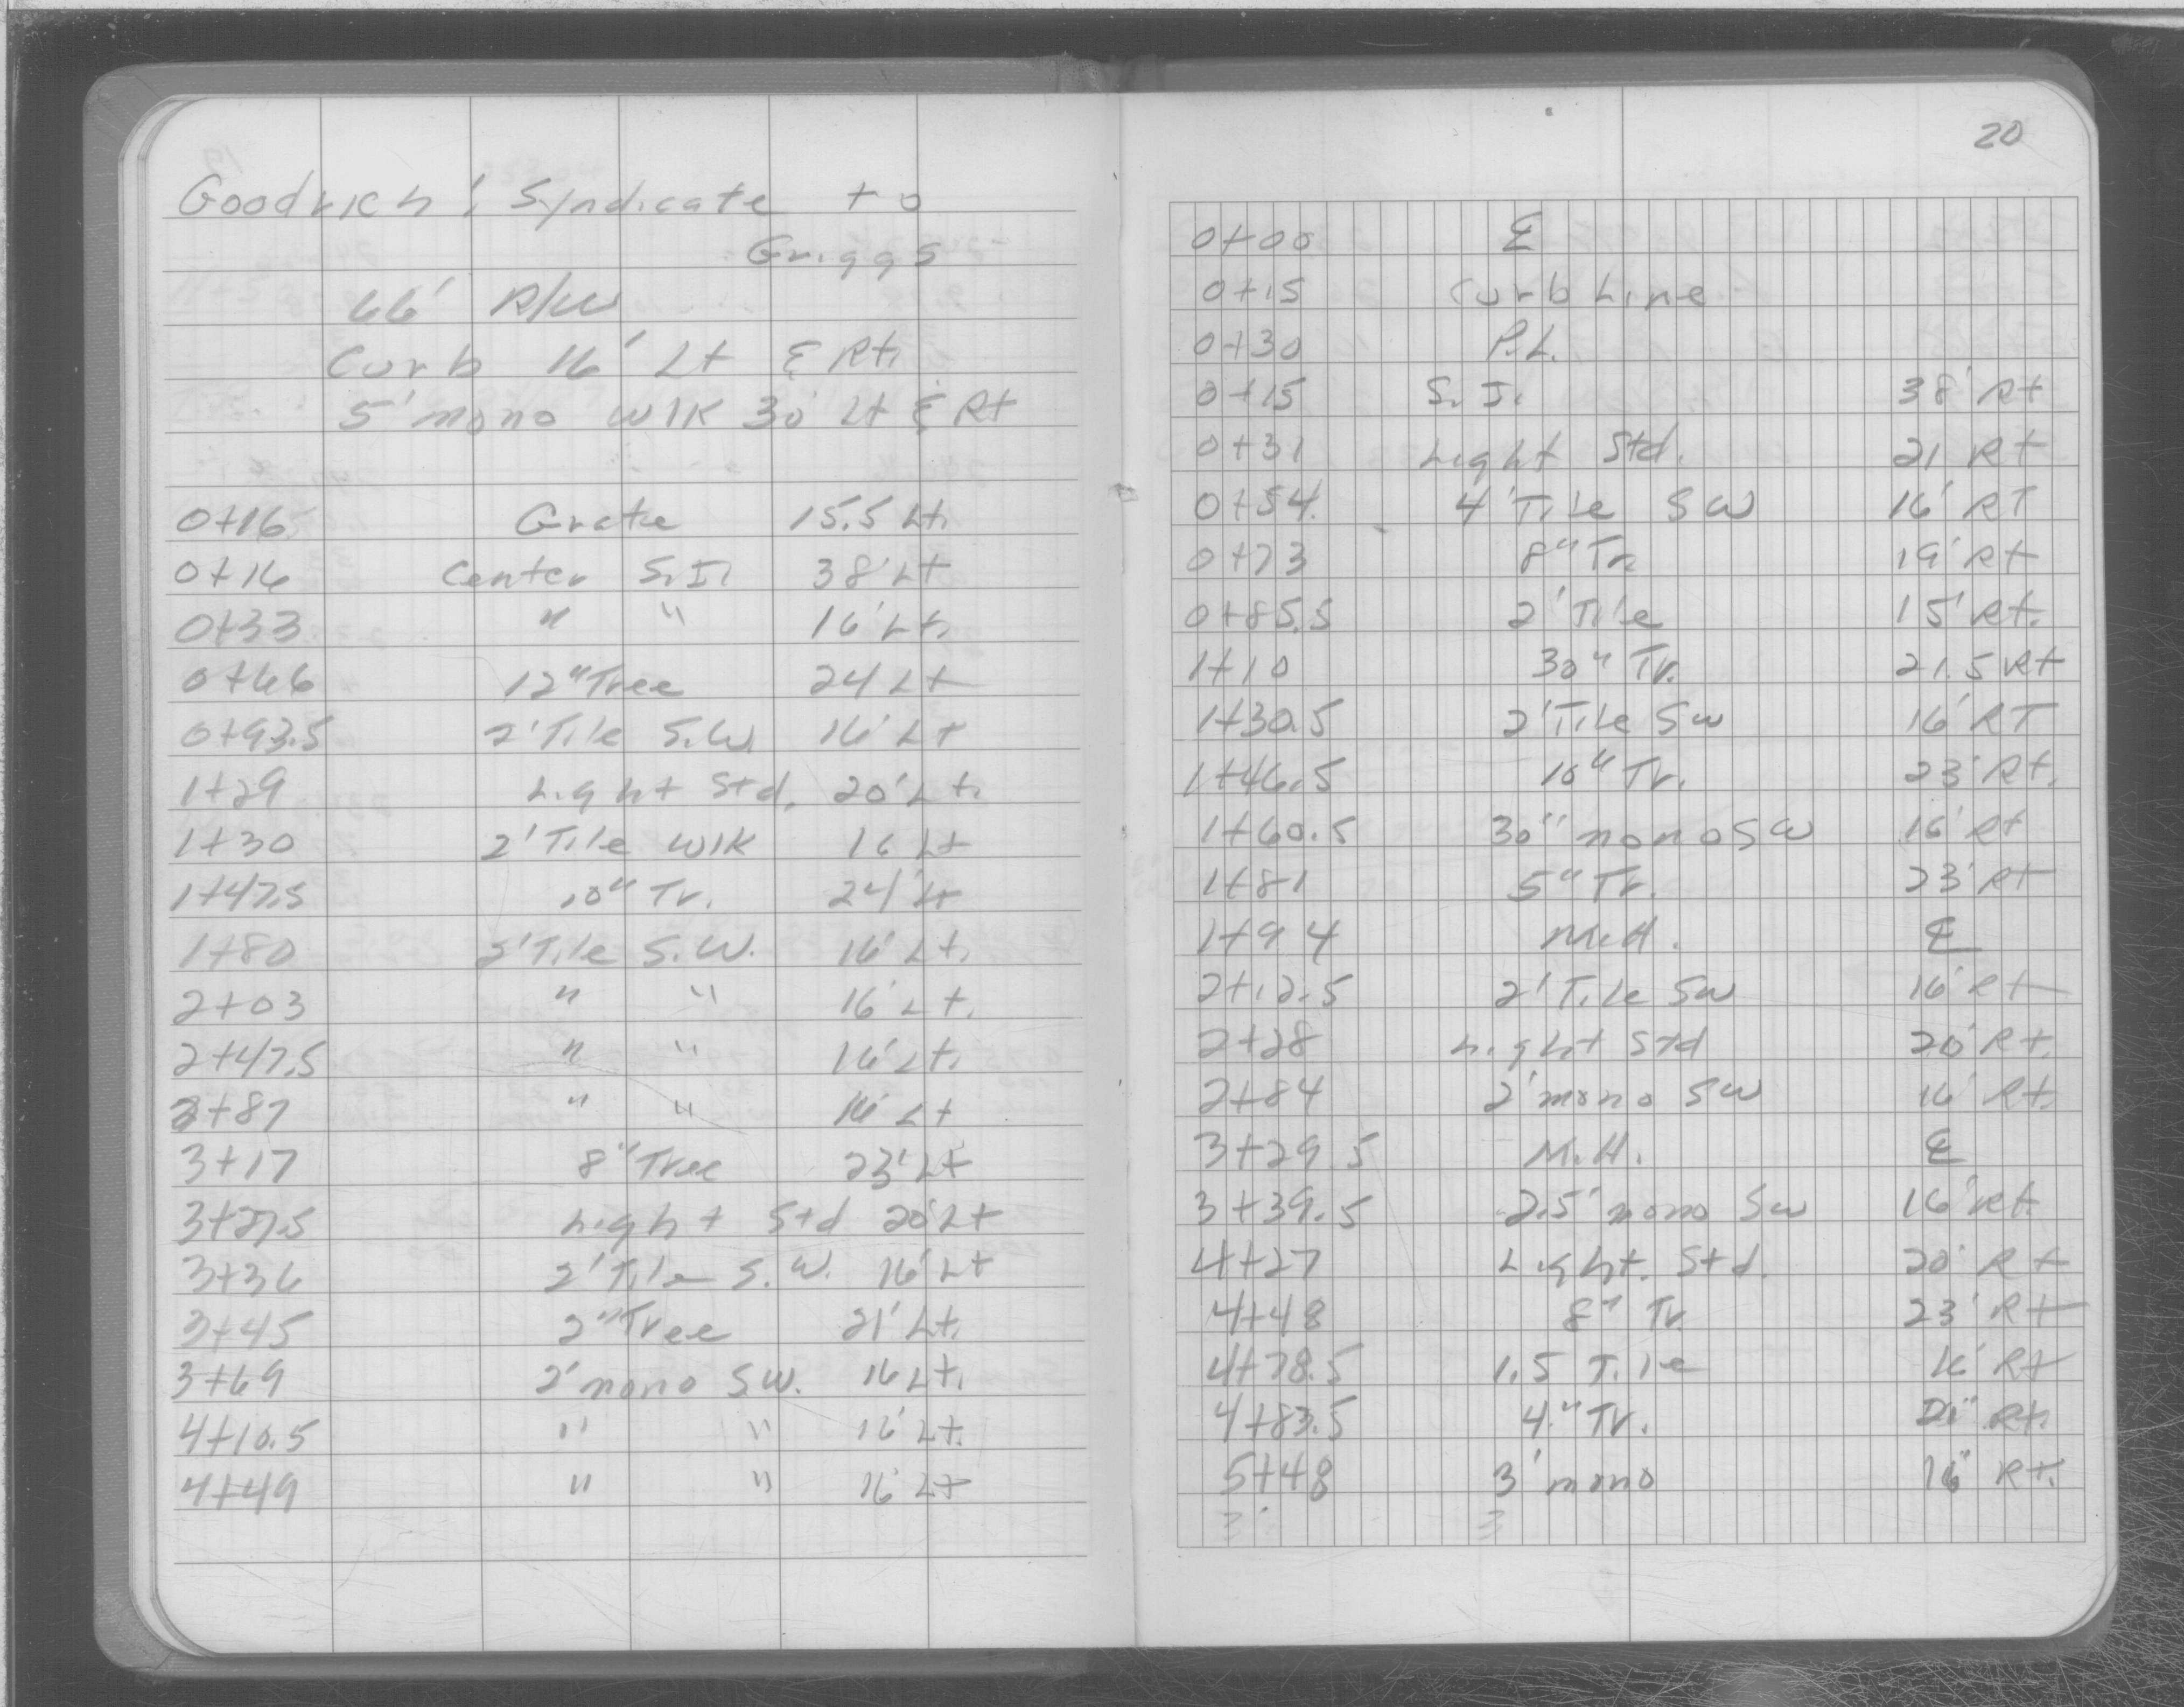 Goodrich ! Syndicate to
Griggs
66' R/W
Curb 16' Lt & Rt.
5' mono WLK 30' Lt & Rt
0+16 Grate 15.5 Lt.
0+16 Center S.I. 38' Lt
0+33 " " 16' Lt.
0+66 12" Tree 24' Lt
0+93.5 2' Tile S.W. 16' Lt
1+29 Light Std. 20' Lt.
1+30 2' Tile WLK 16 Lt
1+47.5 10" Tr. 24' Lt
1+80 2' Tile S.W. 16' Lt.
2+03 " " 16' Lt.
2+47.5 " " 16' Lt.
2+87 " " 16' Lt
3+17 8" Tree 23' Lt
3+27.5 Light Std 20' Lt
3+36 2' Tile S.W. 16' Lt
3+45 2" Tree 21' Lt.
3+69 2' mono S.W. 16 Lt.
4+10.5 " " 16' Lt.
4+49 " " 16' Lt
20
0+00 ℄
0+15 Curb Line
0+30 P.L.
0+15 S.I. 38' Rt
0+31 Light Std. 21 Rt
0+54. 4' Tile SW 16' RT
0+73 8" Tr 19' Rt
0+85.5 2' Tile 15' Rt.
1+10 30" Tr. 21.5 Rt
1+30.5 2' Tile SW 16' RT
1+46.5 10" Tr. 23' Rt.
1+60.5 30" mono SW 16' Rt
1+81 5" Tr. 23' Rt
1+94 M.H. ℄
2+12.5 2' Tile SW 16' Rt
2+28 Light Std 20' Rt.
2+84 2' mono SW 16' Rt.
3+29.5 M.H. ℄
3+39.5 2.5' mono SW 16' Rt.
4+27 Light. Std. 20' Rt
4+48 8" Tr. 23' Rt
4+78.5 1.5 Tile 16' Rt
4+83.5 4" Tr. 21" Rt.
5+48 3' mono 16" Rt.